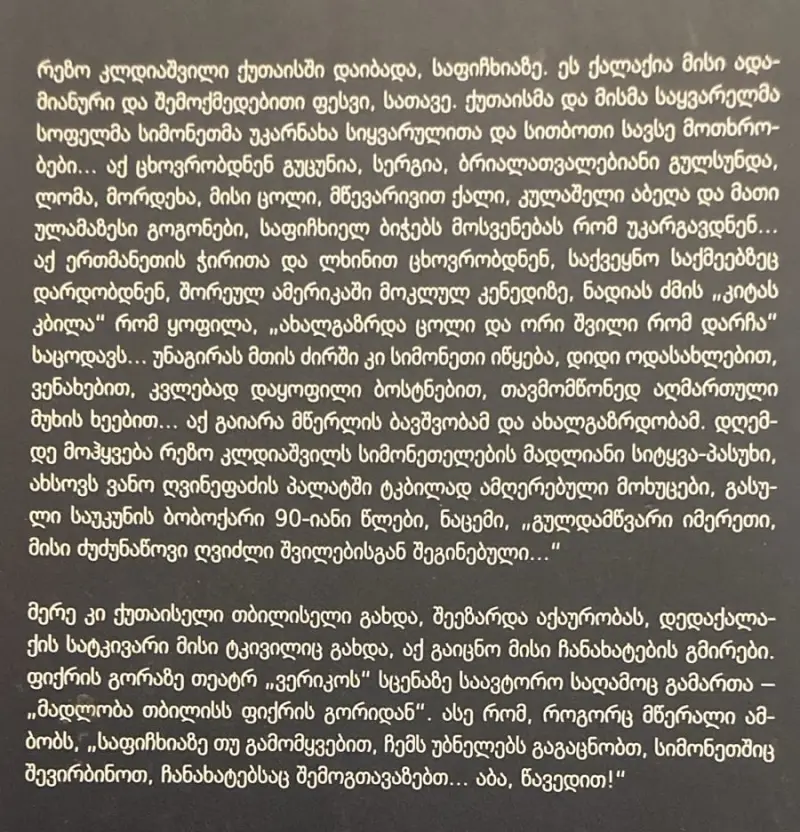 რეზო კლდიაშვილი ქუთაისში დაიბადა, საფიჩხიაზე. ეს ქალაქია მისი ადა-
მიანური და შემოქმედებითი ფესვი, სათავე. ქუთაისმა და მისმა საყვარელმა
სოფელმა სიმონეთმა უკარნახა სიყვარულითა და სითბოთი სავსე მოთხრო-
ბები... აქ ცხოვრობდნენ გუცუნია, სერგია, ბრიალათვალებიანი გულსუნდა,
ლომა, მორდეხა, მისი ცოლი, მწევარივით ქალი, კულაშელი აბეღა და მათი
ულამაზესი გოგონები, საფიჩხიელ ბიჭებს მოსვენებას რომ უკარგავდნენ...
აქ ერთმანეთის ჭირითა და ლხინით ცხოვრობდნენ, საქვეყნო საქმეებზეც
დარდობდნენ, შორეულ ამერიკაში მოკლულ კენედიზე, ნადიას ძმის „კიტას
კბილა“ რომ ყოფილა, „ახალგაზრდა ცოლი და ორი შვილი რომ დარჩა“
საცოდავს... უნაგირას მთის ძირში კი სიმონეთი იწყება, დიდი ოდასახლებით,
ვენახებით, კვლებად დაყოფილი ბოსტნებით, თავმომწონედ აღმართული
მუხის ხეებით... აქ გაიარა მწერლის ბავშვობამ და ახალგაზრდობამ. დღემ-
დე მოჰყვება რეზო კლდიაშვილს სიმონეთელების მადლიანი სიტყვა-პასუხი,
ახსოვს ვანო ღვინეფაძის პალატში ტკბილად ამღერებული მოხუცები, გასუ-
ლი საუკუნის ბობოქარი 90-იანი წლები, ნაცემი, „გულდამწვარი იმერეთი,
მისი ძუძუნაწოვი ღვიძლი შვილებისგან შეგინებული...“
მერე კი ქუთაისელი თბილისელი გახდა, შეეზარდა აქაურობას, დედაქალა-
ქის სატკივარი მისი ტკივილიც გახდა, აქ გაიცნო მისი ჩანახატების გმირები.
ფიქრის გორაზე თეატრ „ვერიკოს“ სცენაზე საავტორო საღამოც გამართა –
„მადლობა თბილისს ფიქრის გორიდან“. ასე რომ, როგორც მწერალი ამ-
ბობს, „საფიჩხიაზე თუ გამომყვებით, ჩემს უბნელებს გაგაცნობთ, სიმონეთშიც
შევირბინოთ, ჩანახატებსაც შემოგთავაზებთ... აბა, წავედით!“